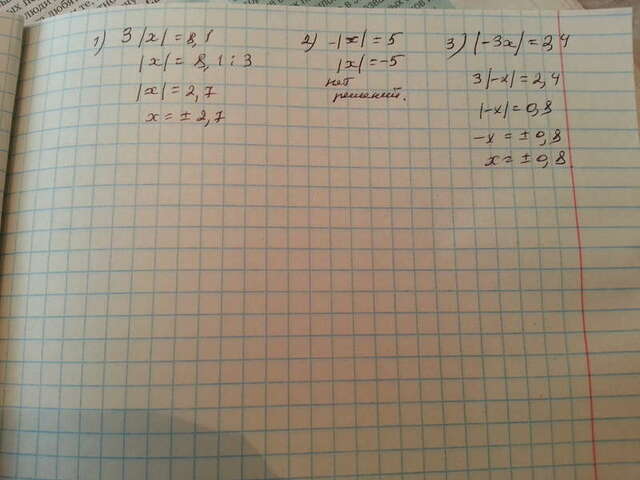 1) 3|x| = 8,1
|x| = 8,1 : 3
|x| = 2,7
x = ± 2,7
2) -|x| = 5
|x| = -5
нет
решений.
3) |-3x| = 2,4
3|-x| = 2,4
|-x| = 0,8
-x = ± 0,8
x = ± 0,8